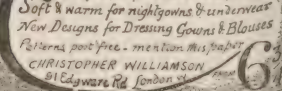 Soft & warm for nightgowns & underwear
New Designs for Dressing Gowns & Blouses
Patterns post free - mention this paper
CHRISTOPHER WILLIAMSON
91 Edgware Rd London W.
FROM 6 3